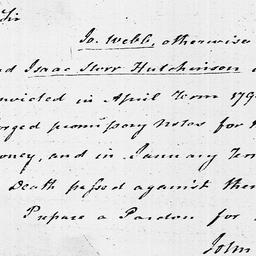 Sir
Jo. Webb, otherwise
nd Isaac Storr Hutchinson
nvicted in April Term 179
orged promissory Notes for
oney, and in January Ter
Death passed against the
Prepare a Pardon for
John